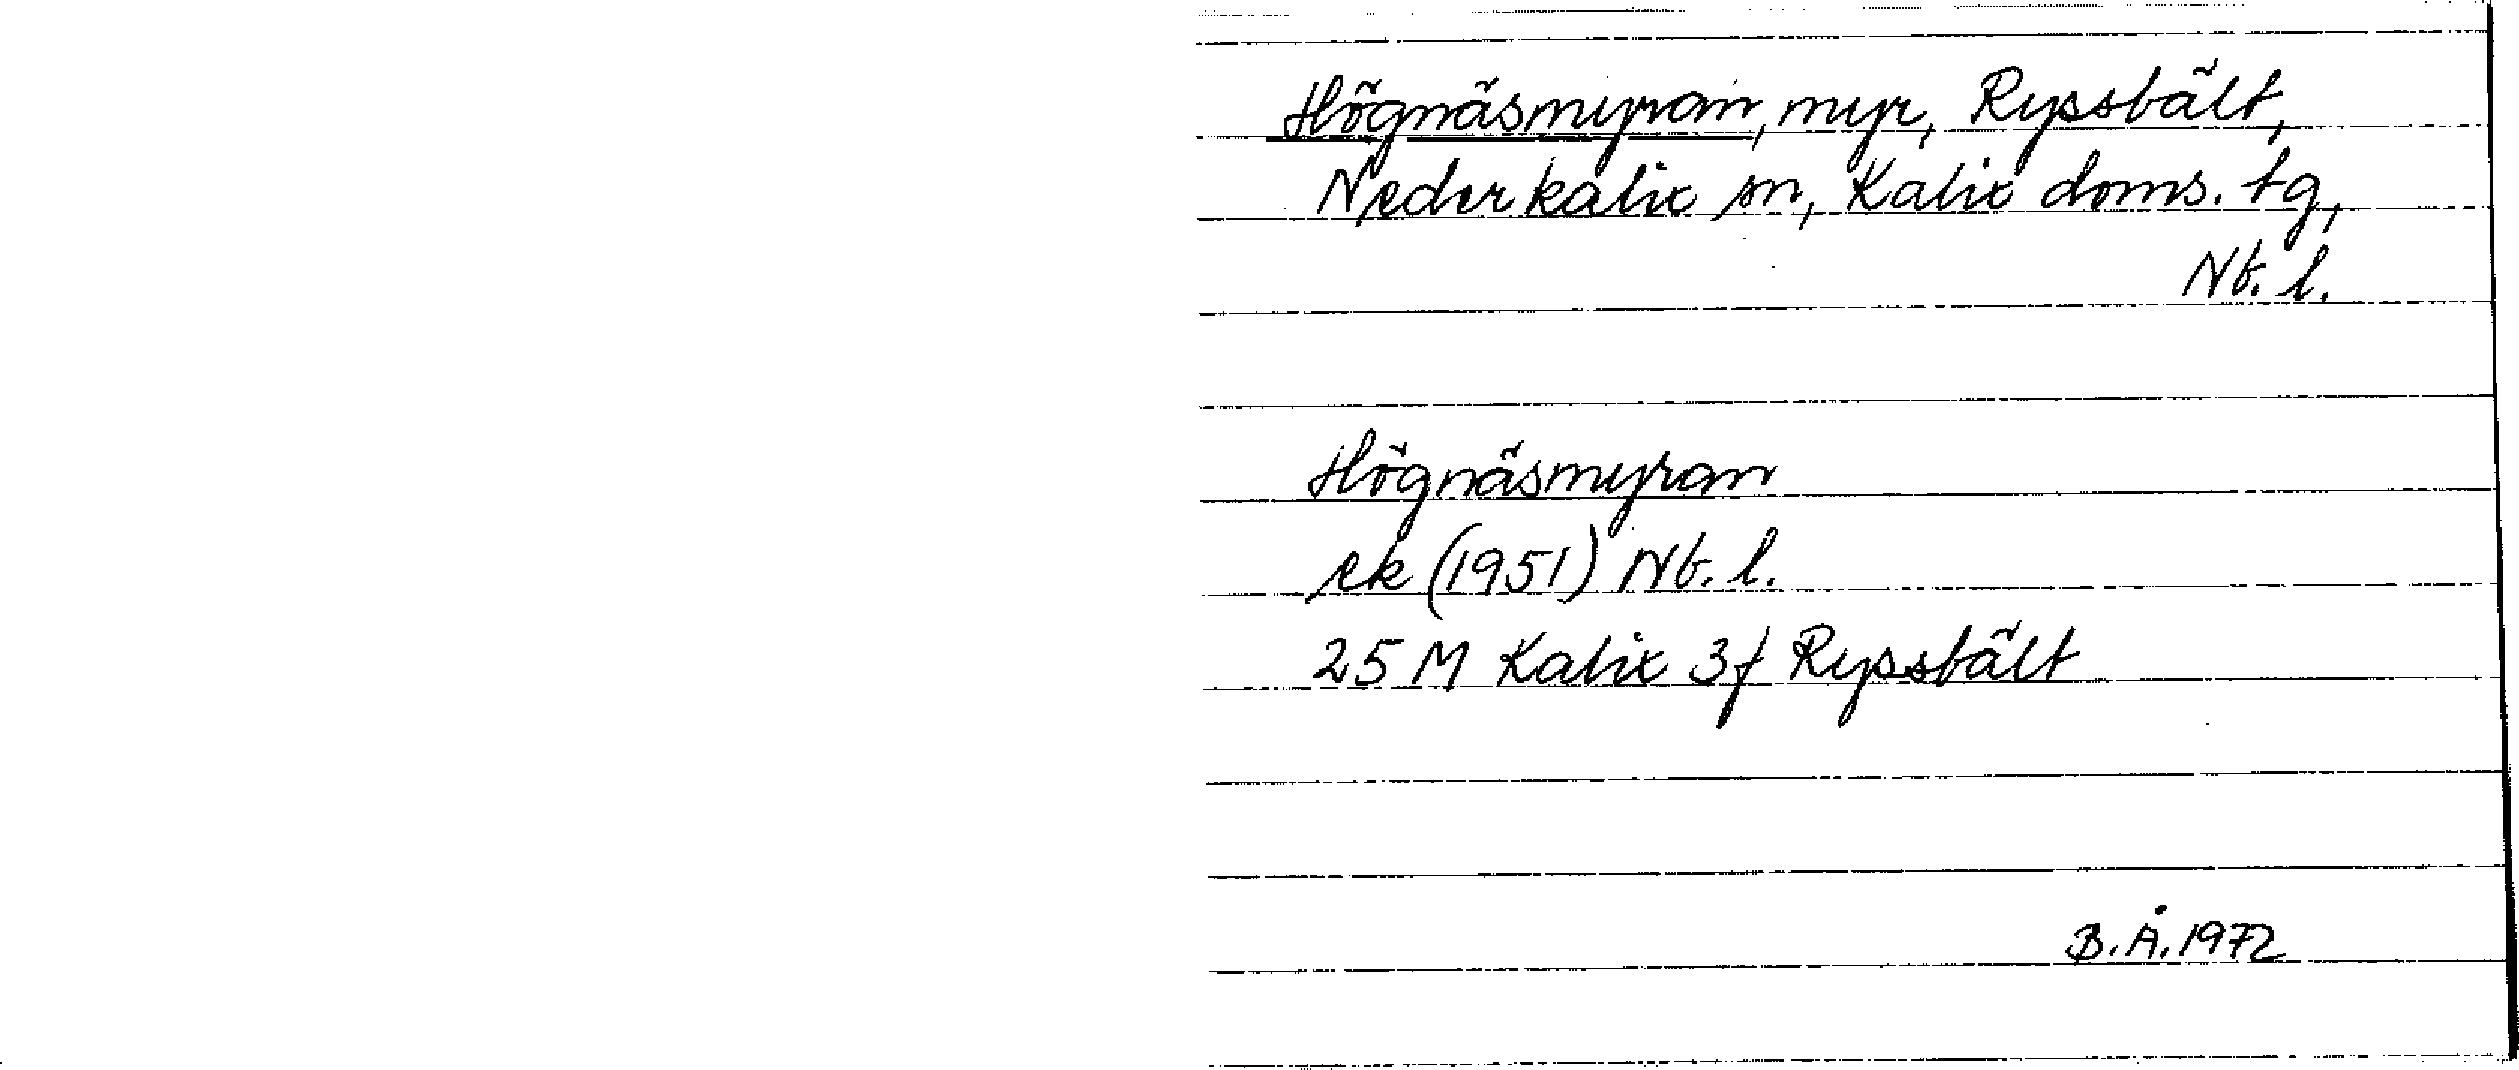 Högnäsmyran, myr, Ryssbält,
Nederkalix sn, Kalix doms. tg,
Nb. l.
Högnäsmyran
ek (1951) Nb. l.
25 M Kalix 3f Ryssbält
B.Å. 1972